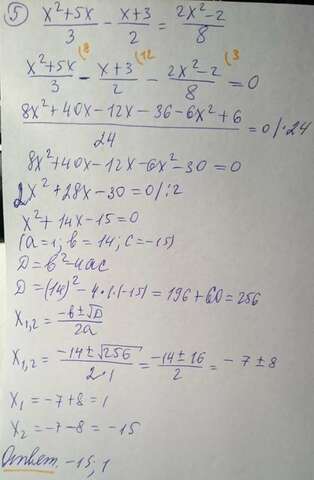 ⑤ (x²+5x)/3 - (x+3)/2 = (2x²-2)/8
(8 (12 (3
(x²+5x)/3 - (x+3)/2 - (2x²-2)/8 = 0
(8x²+40x-12x-36-6x²+6)/24 = 0 /·24
8x²+40x-12x-6x²-30=0
2x²+28x-30=0/:2
x²+14x-15=0
(a=1; b=14; c=-15)
D=b²-4ac
D=(14)²-4·1·(-15)=196+60=256
x₁,₂ = (-b±√D)/2a
x₁,₂ = (-14±√256)/(2·1) = (-14±16)/2 = -7±8
x₁ = -7+8=1
x₂ = -7-8= -15
Ответ. -15; 1